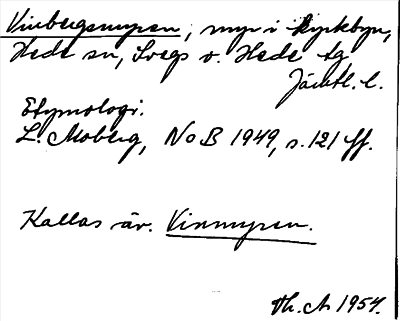 Vinbergsmyren, myr i Kyrkbyn,
Hede sn, Svegs o. Hede tg
Jämtl. l.
Etymologi:
L. Moberg, NoB 1949, s. 121 ff.
Kallas äv. Vinmyren.
Th. A 1954.